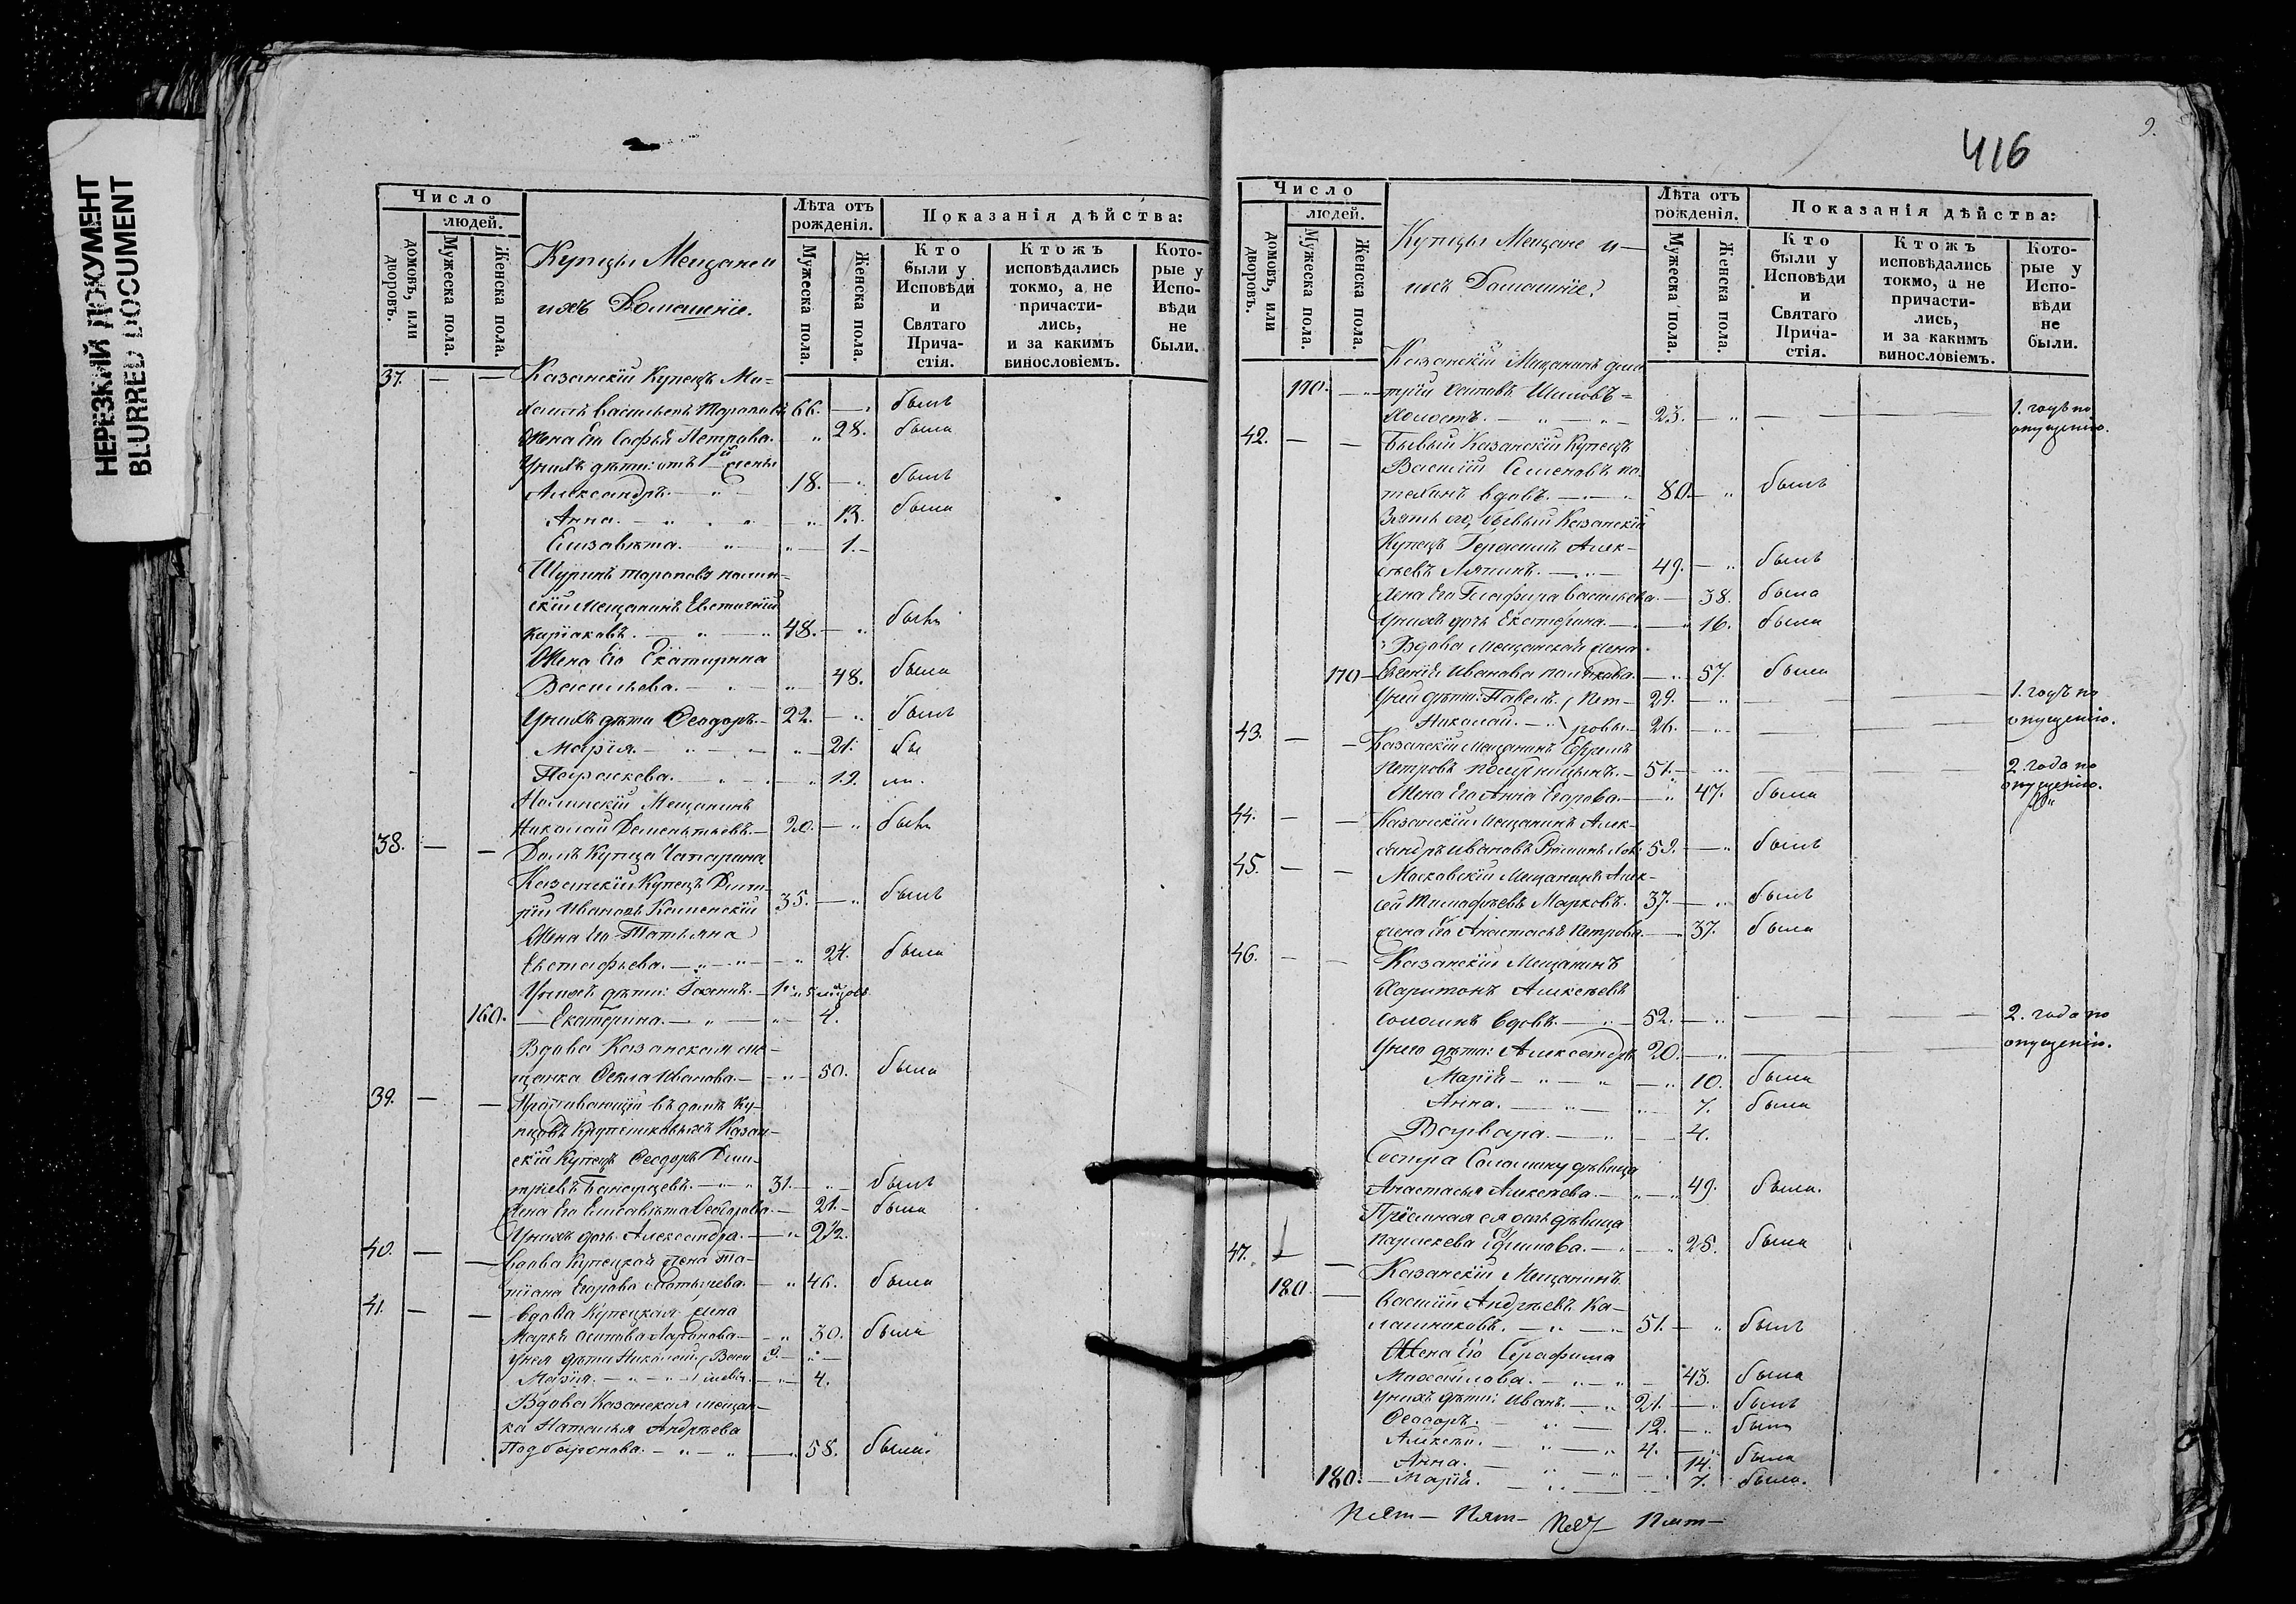 НЕРЕЗКИЙ ДОКУМЕНТ
BLURRED DOCUMENT
Число
людей.
домовъ, или дворовъ.
Мужеска пола.
Женска пола.
Купцы Мещане и
ихъ Домашніе.
Лѣта отъ рожденія.
Мужеска пола.
Женска пола.
Показанія дѣйства:
Кто были у Исповѣди и Святаго Прича-стія.
Ктожъ исповѣдались токмо, а не причасти-лись, и за какимъ винословіемъ.
Кото-рые у Испо-вѣди не были.
37. — — Казанскій Купецъ Ми-
хаилъ Васильевъ 66. — былъ
Жена Его Софья Петрова. — " 28. была
У нихъ дѣти: отъ 1й жены
Александръ. — " — 18. — " былъ
Анна. — " " — " 13. была
Елизавета. — " — " — 1. —
Шуринъ
скій Мещанинъ
48. — " былъ
Жена Его Екатерина
Васильева. — " — " 48. была
У нихъ дѣти Ѳеодоръ. — 22. — " былъ
Марія. — " — " — 21. бы
Параскева. — " — " 19. ли.
Мещанинъ
Николай Дементьевъ. — 20. — " былъ
38. — — Домъ Купца
Казанскій Купецъ Дмит-
рій Ивановъ Каменскій 35. — " былъ
Жена Его Татьяна
Евстафьева. — " — " — " 24. была
У нихъ дѣти: Іоаннъ. — 1
160. — Екатерина. — " — " 4.
Вдова Казанская ме-
щанка Ѳекла Иванова. — " — 50. была
39. — — Проживающій въ домѣ Ку-
пцовъ Крупениковыхъ Казан-
скій Купецъ Ѳеодоръ Дми-
тріевъ — " 31. — " — былъ
Жена Его Елисавета Ѳеодорова. — 21. — была
У нихъ дочь Александра. — " 2½.
40. — — Вдова Купецкая жена Та-
тіана Егорова — " 46. была
41. — — Вдова Купецкая жена
Марья Осипова — " 30. была
У нея дѣти Николай ( Васи 9. — " —
Марія. — " — " — " 4.
Вдова Казанская мещан-
ка Наталья Андреева
— " — " — 58. была.
416
9.
Число
людей.
домовъ, или дворовъ.
Мужеска пола.
Женска пола.
Купцы Мещане и —
ихъ Домашніе.
Лѣта отъ рожденія.
Мужеска пола.
Женска пола.
Показанія дѣйства:
Кто были у Исповѣди и Святаго Прича-стія.
Ктожъ исповѣдались токмо, а не причасти-лись, и за какимъ винословіемъ.
Кото-рые у Испо-вѣди не были.
Казанскій Мещанинъ Дми
190. — трій Осиповъ Шиловъ =
Холостъ. — " — " — 23. — " — — 1. годъ по опущенію.
42. — — Бывый Казанскій Купецъ
Василій Семеновъ По-
техинъ вдовъ. — " — 80. — " былъ
Зять его, бывый Казанскій
Купецъ Герасимъ Алек-
сѣевъ Ляпинъ. — " — 49. — " былъ
Жена Его Глафира Васильева. — 38. была
У нихъ дочь Екатерина. — " — " 16. была
Вдова Мещанская жена
170 — Ивановна — " 57. была
У ней дѣти: Павелъ. ( Пет- 29. — " — — 1. годъ по
Николай. — " ) ровы. — 26. — " — — опущенію.
43. — — Казанскій Мещанинъ Ефремъ
Петровъ — 51. — " — — 2. года по
Жена Его Анна Егорова. — " 47. была опущенію.
44. — — Казанскій Мещанинъ Алек-
сандръ Ивановъ 59. — " былъ
45. — — Московскій Мещанинъ Алек-
сѣй Тимофѣевъ Марковъ. 37. — " былъ
Жена Его Анастасья Петрова. — " 37. была
46. — — Казанскій Мещанинъ
Харитонъ Алексѣевъ
Соломинъ вдовъ. — " — 52. — " — — — 2. года по
У него дѣти: Александръ 20. — " — — опущенію.
Марія — " — " — " 10. была
Анна. — " — " — 7. была
Варвара. — " — — 4.
Сестра Соломину дѣвица
Анастасья Алексѣева. — " — 49. была.
Пріемная ея дочь дѣвица
Параскева Ефимова. — " — " 25. была
47. — — Казанскій Мещанинъ
180 — Василій Андреевъ Ка-
лашниковъ. — " — " 51. — " былъ
Жена Его Серафима
Михайлова. — " — " — 43. была
У нихъ дѣти: Иванъ. — " 21. — " былъ
Ѳеодоръ. — " — 12. — " былъ
Алексѣй. — " — " 4. — "
Анна. — " — " 14. была
180. — Марія. — " — " 7. была.